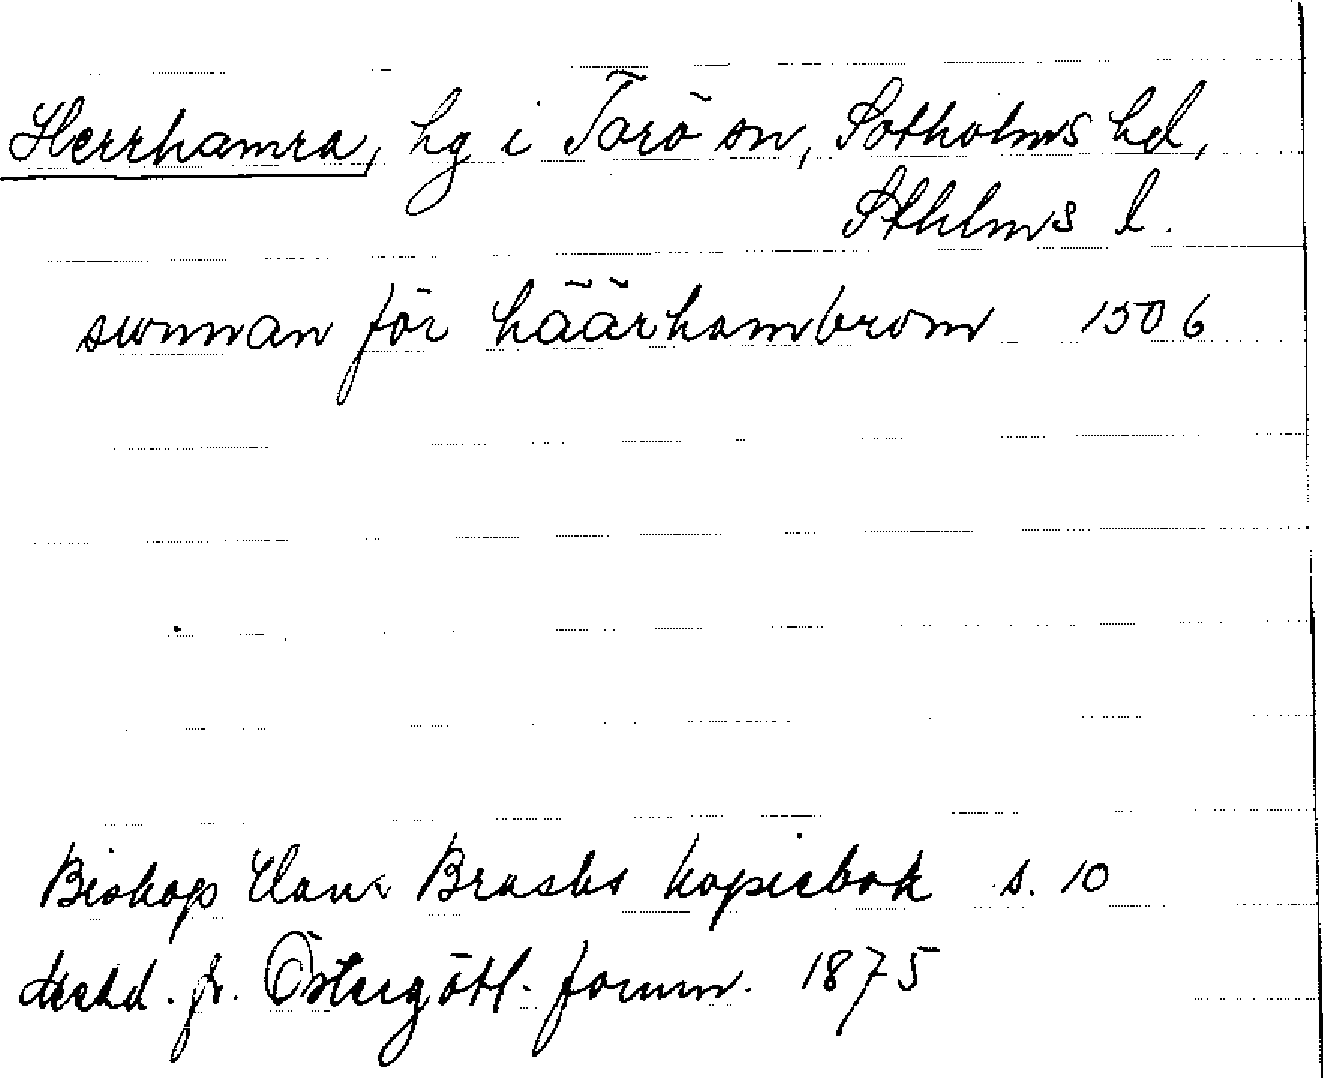 Herrhamra, hg i Torö sn, Sotholms hd,
Sthlms l.
sunnan för häärhambrom 1506
Biskop Hans Brasks kopiebok s. 10
Meddel. fr. Östergötl. fornm. 1875